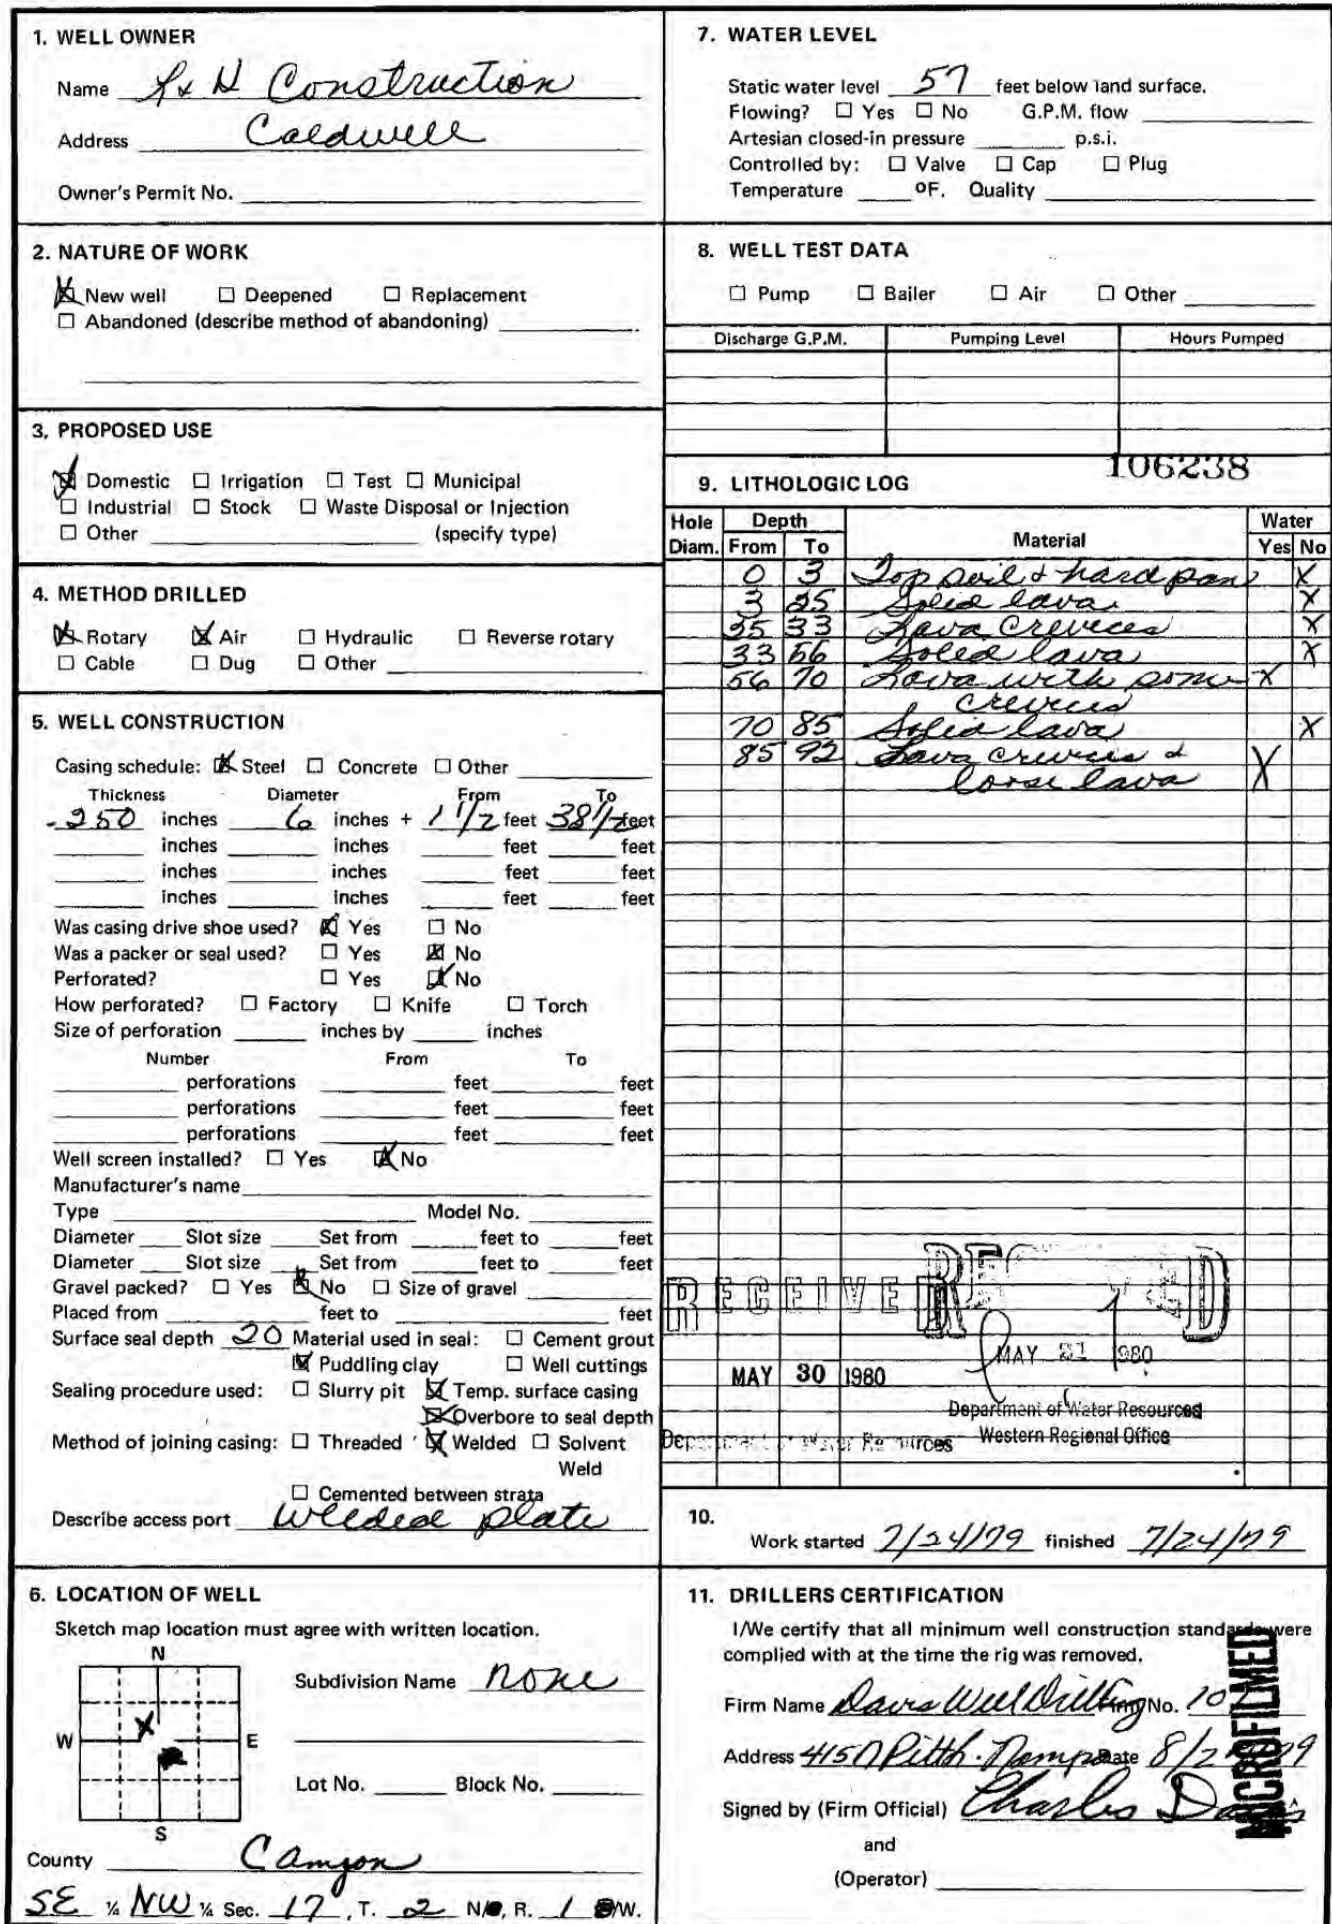 1. WELL OWNER
Name R & H Construction
Address Caldwell
Owner's Permit No.
2. NATURE OF WORK
New well Deepened Replacement
Abandoned (describe method of abandoning)
3. PROPOSED USE
Domestic Irrigation Test Municipal
Industrial Stock Waste Disposal or Injection
Other (specify type)
4. METHOD DRILLED
Rotary Air Hydraulic Reverse rotary
Cable Dug Other
5. WELL CONSTRUCTION
Casing schedule: Steel Concrete Other
Thickness Diameter From To
.250 inches 6 inches + 1 1/2 feet 38 1/2 feet
inches inches feet feet
inches inches feet feet
inches inches feet feet
Was casing drive shoe used? Yes No
Was a packer or seal used? Yes No
Perforated? Yes No
How perforated? Factory Knife Torch
Size of perforation inches by inches
Number From To
perforations feet feet
perforations feet feet
perforations feet feet
Well screen installed? Yes No
Manufacturer's name
Type Model No.
Diameter Slot size Set from feet to feet
Diameter Slot size Set from feet to feet
Gravel packed? Yes No Size of gravel
Placed from feet to feet
Surface seal depth 20 Material used in seal: Cement grout
Puddling clay Well cuttings
Sealing procedure used: Slurry pit Temp. surface casing
Overbore to seal depth
Method of joining casing: Threaded Welded Solvent
Weld
Cemented between strata
Describe access port Welded plate
6. LOCATION OF WELL
Sketch map location must agree with written location.
N
W X E
S
Subdivision Name none
Lot No. Block No.
County Canyon
SE ¼ NW ¼ Sec. 17, T. 2 N/, R. 1 /W.
7. WATER LEVEL
Static water level 57 feet below land surface.
Flowing? Yes No G.P.M. flow
Artesian closed-in pressure p.s.i.
Controlled by: Valve Cap Plug
Temperature °F. Quality
8. WELL TEST DATA
Pump Bailer Air Other
Discharge G.P.M. Pumping Level Hours Pumped
106238
9. LITHOLOGIC LOG
Hole Depth Water
Diam. From To Material Yes No
0 3 Top soil & hard pan X
3 25 Solid lava X
25 33 Lava crevices X
33 56 Solid lava X
56 70 Lava with some X
crevices
70 85 Solid lava X
85 92 Lava crevices & X
loose lava
RECEIVED
MAY 30 1980
Department of Water Resources
MAY 21 1980
Department of Water Resources
Western Regional Office
10.
Work started 7/24/79 finished 7/24/79
11. DRILLERS CERTIFICATION
I/We certify that all minimum well construction standards were
complied with at the time the rig was removed.
Firm Name Davis Well Drilling Firm No.
Address 415 Nampa Date
Signed by (Firm Official) Charles Davis
and
(Operator)
MICROFILMED